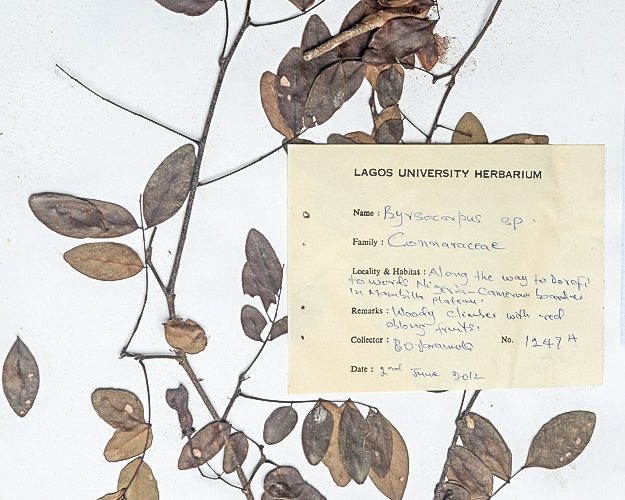 LAGOS UNIVERSITY HERBARIUM
Name : Byrsocarpus sp.
Family : Connaraceae
Locality & Habitat : Along the way to Dorofi
towords Nigeria-Cameroun boarder
in Mambilla plateau.
Remarks : Woody Climber with red
oblong fruits.
Collector : No. 1247 A
Date : 2nd June 2012